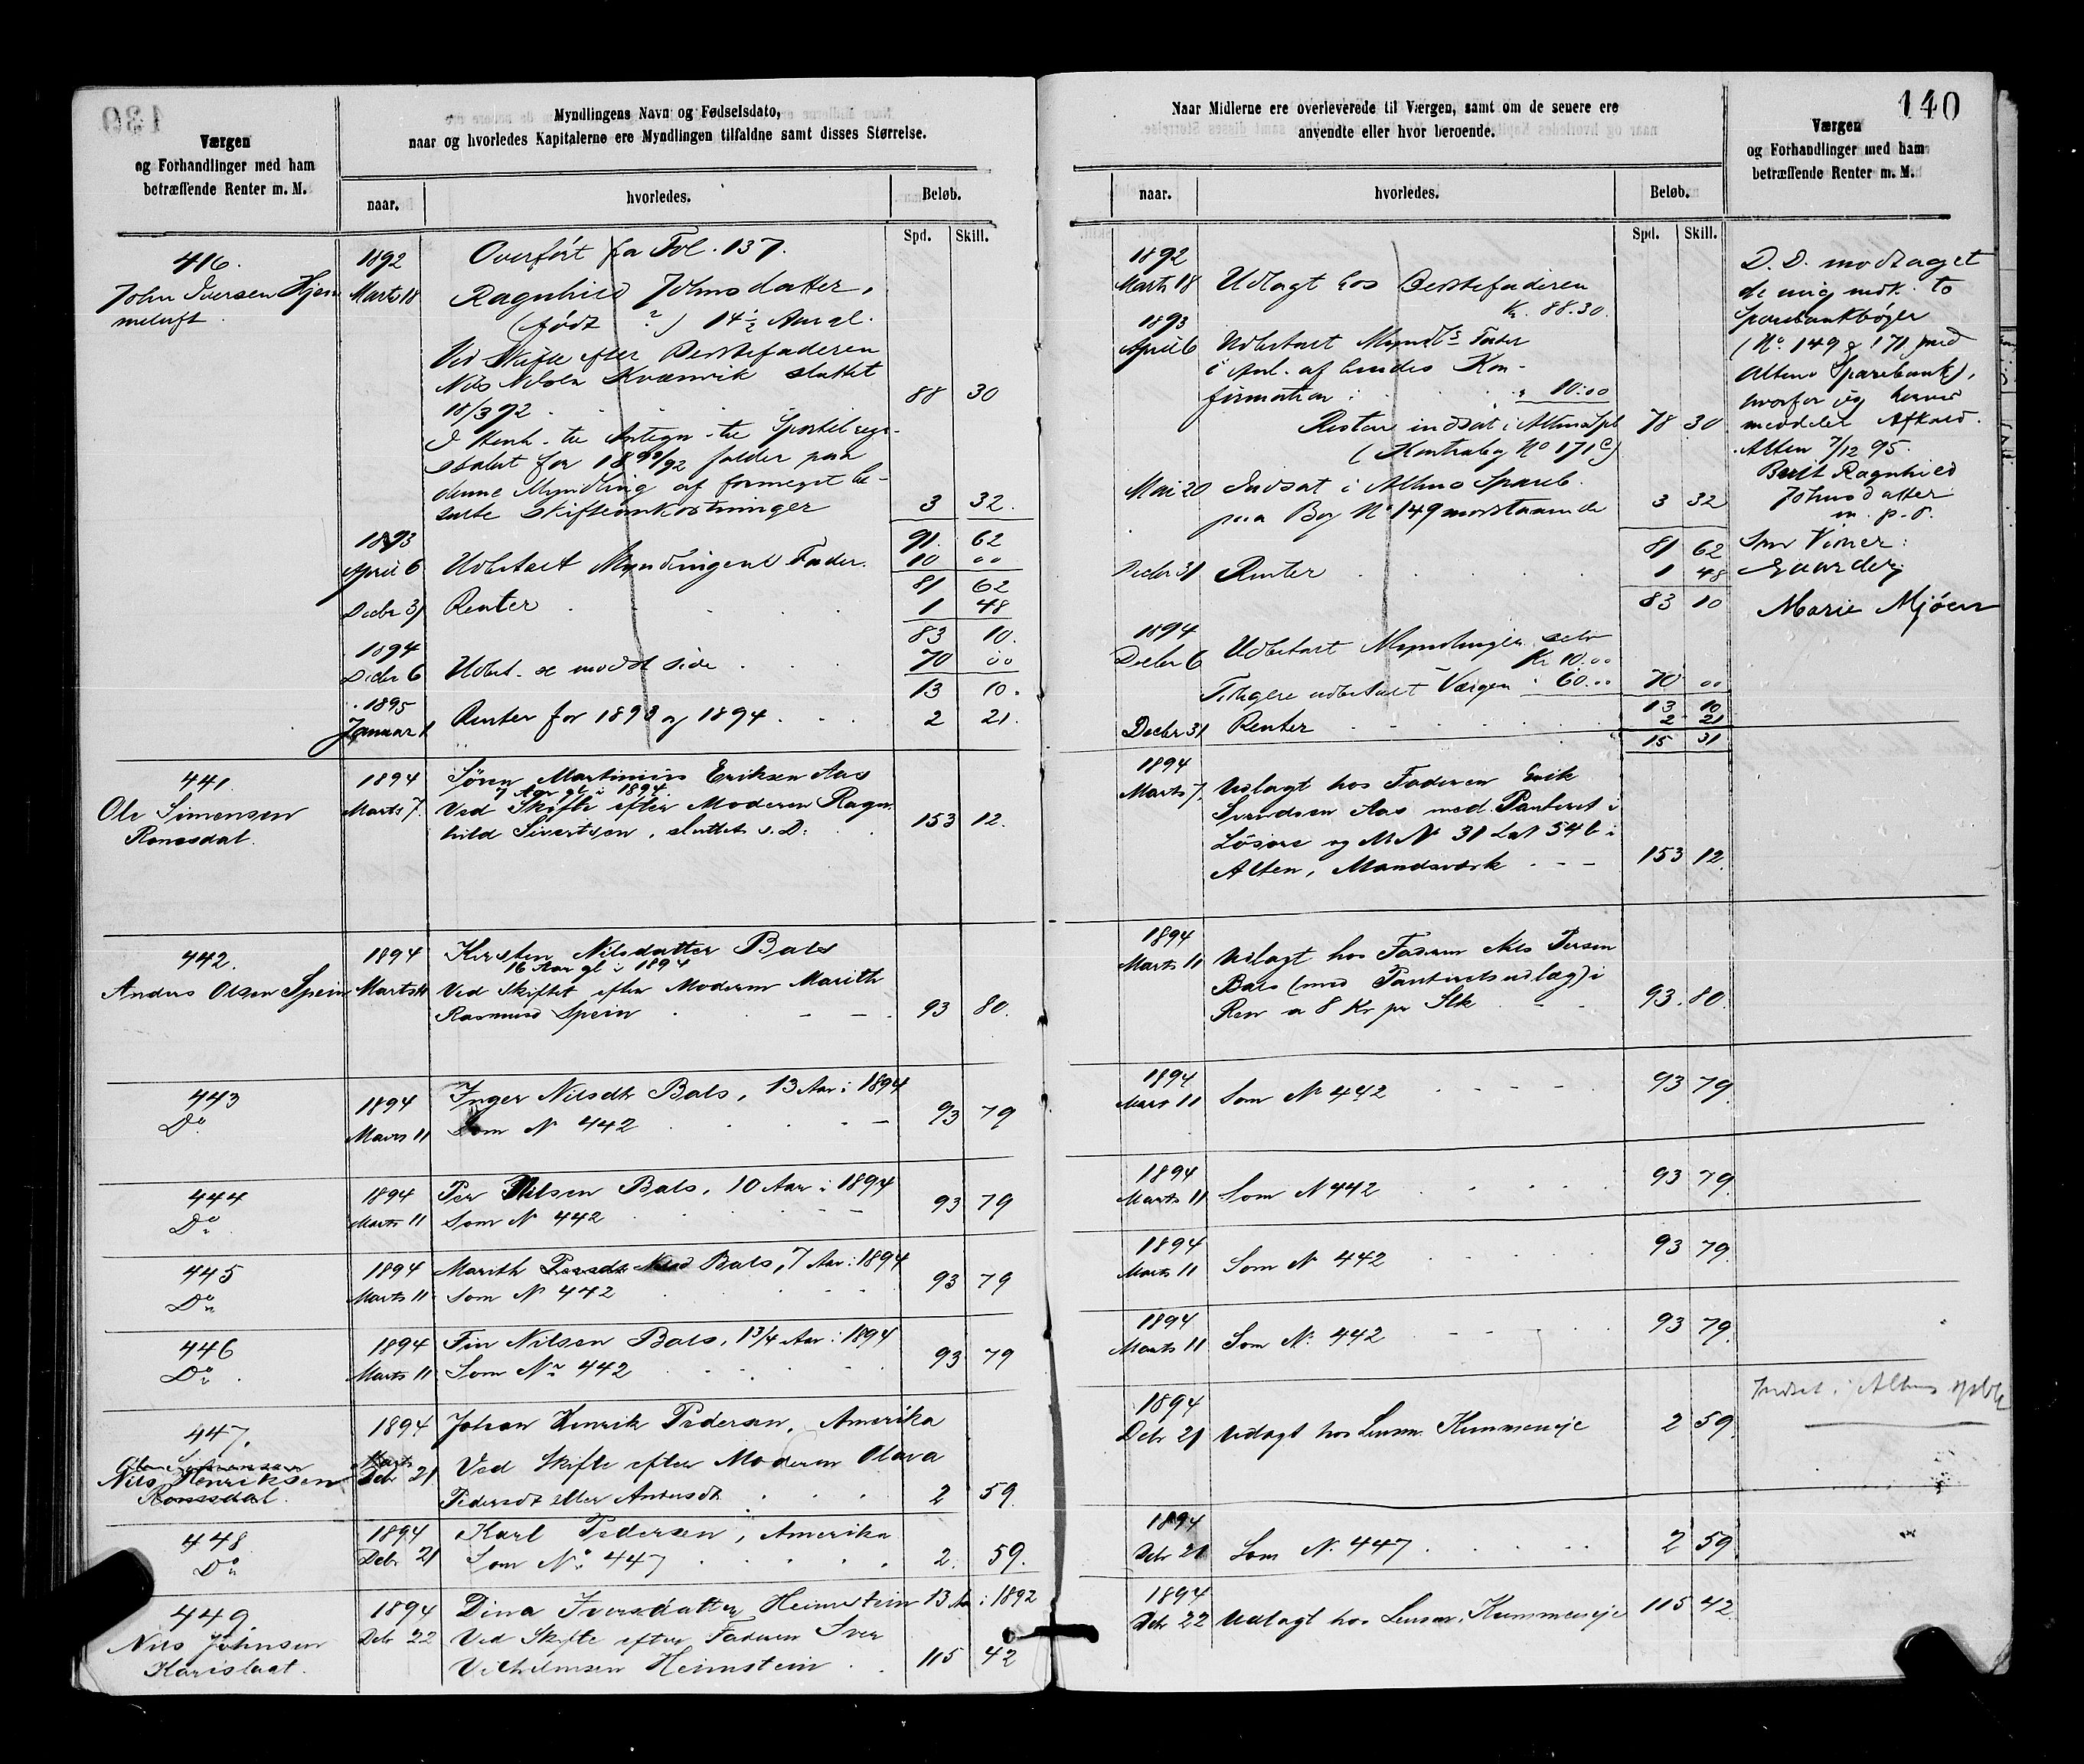 Værgen
og Forhandlinger med ham
betræffende Renter m. M.
Myndlingens Navn og Fødselsdato,
naar og hvorledes Kapitalerne ere Myndlingen tilfaldne samt disses Størrelse.
naar.
hvorledes.
Beløb.
Spd. Skill.
416.
John Iversen Hjem
meluft
1892
Marts 18
Overført fra Fol. 137.
Ragnhild Johnsdatter,
(født ?) 14½ Aar gl.
Ved Skifte efter Bestefaderen
Nils Nilsen Kvænvik sluttet
18/3 92 88 30
denne Myndling af formeget be-
talte Skifteomkostninger 3 32.
1893 91. 62
April 6 Udbetalt Myndlingens Fader. 10 00
81 62
Decbr 31 Renter 1 48
83 10.
1894
Decbr 6 Udbet. se modst side 70 00
13 10.
1895
Januar 1 Renter for 1893 og 1894 2 21.
441.
Ole Simensen
Ronesdal.
1894
Marts 7.
Søren Martinius Eriksen Aas
7 Aar gl i 1894.
Ved Skifte efter Moderen Ragn
hild Sivertsen, sluttet s. D. 153 12.
442.
Anders Olsen Spein
1894
Marts 11
Kirsten Nilsdatter Bals
16 Aar gl i 1894
Ved Skiftet efter Moderen Marith
Rasmusd Spein 93 80.
443
Do
1894
Marts 11
Inger Nilsdtr Bals, 13 Aar i 1894
Som N 442 93 79
444
Do
1894
Marts 11
Per Nilsen Bals, 10 Aar i 1894
Som N 442 93 79
445
Do
1894
Marts 11
Marith Persdtr Nilsd Bals, 7 Aar i 1894
Som N 442 93 79
446
Do
1894
Marts 11
Fin Nilsen Bals, 1 3/4 Aar i 1894
Som No 442 93 79
447.
Ole Simensen
Nils Henriksen
Ronesdal.
1894
Marts
Debr 21
Johan Henrik Pedersen, Amerika
Ved Skifte efter Moderen Olava
Pedersdt eller Andersdt 2 59.
448
Do
1894
Debr 21
Karl Pedersen, Amerika
Som No 447 2. 59.
449.
Nils Johnsen
Horislaat.
1894
Debr 22
Dina Iversdatter Heimstein 13 Aar i 1892
Ved Skifte efter Faderen Iver
Vilhelmsen Heimstein 115 42
140
Naar Midlerne ere overleverede til Værgen, samt om de senere ere
anvendte eller hvor beroende.
Værgen
og Forhandlinger med ham
betræffende Renter m. M.
naar.
hvorledes.
Beløb.
Spd. Skill.
1892
Marts 18 Udlagt hos Bestefaderen
Kr. 88.30.
1893
April 6 Udbetalt Myndls Fader
i Anl. af hendes Kon-
firmation 10.00
Resten indsat i Altens Spb 78 30
(Kontrabog No 171 c)
Mai 20 Indsat i Altens Spareb.
paa Bog No 149 3 32
81 62
Decbr 31 Renter 1 48
83 10
1894
Decbr 6 Udbetalt Myndlingen selv
Kr 10.00
Tidligere udbetalt Værgen 60.00 70 00
13 10
Decbr 31 Renter 2 21
15 31
D. D. modtaget
to
Sparebankbøger
(No. 149 & 171 med
Altens Sparebank),
hvorfor jeg herved
meddeler Afkald.
Alten 7/12 95.
Berit Ragnhild
Johnsdatter
m. p. P.
Som Vitner:
Marie Mjøen
1894
Marts 7. Udlagt hos Faderen Erik
Svendsen Aas med Panteret i
Løsøre og M No 31 Lnr 54 b i
Alten, Mandsværk 153 12.
1894
Marts 11 Udlagt hos Faderen Nils Persen
Bals (med Panteretsudlæg) i
Ren a 8 Kr pr Stk 93. 80.
1894
Marts 11 Som N 442 93 79.
1894
Marts 11 Som N 442 93 79.
1894
Marts 11 Som N 442 93 79.
1894
Marts 11 Som N. 442 93 79.
1894
Debr 21 Udlagt hos Lensm. Kummeneje 2 59.
Indsat i Altens spbk
1894
Debr 21 Som N. 447 2 59.
1894
Debr 22 Udlagt hos Lensm. Kummeneje 115 42.